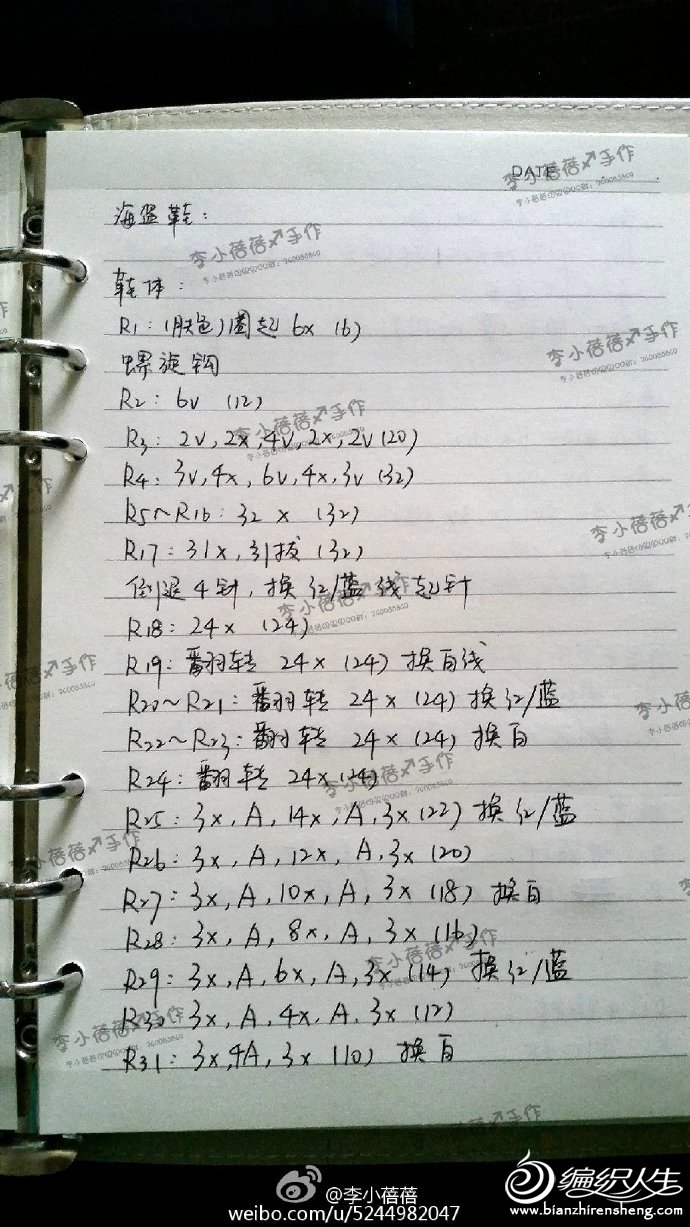 DATE
海盗鞋：
鞋体：
R1：(肤色)圈起 6x (6)
螺旋钩
R2：6v (12)
R3：2v, 2x, 4v, 2x, 2v (20)
R4：3v, 4x, 6v, 4x, 3v (32)
R5~R16：32 x (32)
R17：31x, 引拔 (32)
倒退4针, 换红/蓝线起针
R18：24x (24)
R19：翻转 24x (24) 换白线
R20~R21：翻转 24x (24) 换红/蓝
R22~R23：翻转 24x (24) 换白
R24：翻转 24x (24)
R25：3x, A, 14x, A, 3x (22) 换红/蓝
R26：3x, A, 12x, A, 3x (20)
R27：3x, A, 10x, A, 3x (18) 换白
R28：3x, A, 8x, A, 3x (16)
R29：3x, A, 6x, A, 3x (14) 换红/蓝
R30：3x, A, 4x, A, 3x (12)
R31：3x, 4A, 3x (10) 换白
李小蓓蓓手作
@李小蓓蓓
weibo.com/u/5244982047
编织人生
www.bianzhirensheng.com